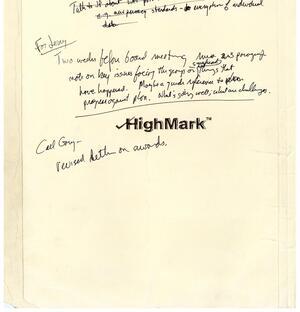 Talk to
e.g. new privacy standards - encryption of individual
data
For Jenny
Two weeks before board meeting
note on key issues facing the group or things that
have happened. Maybe a quick reference to
progress against plan. What's going well, what are challenges.
HighMark™
Call Gary -
revised on awards.